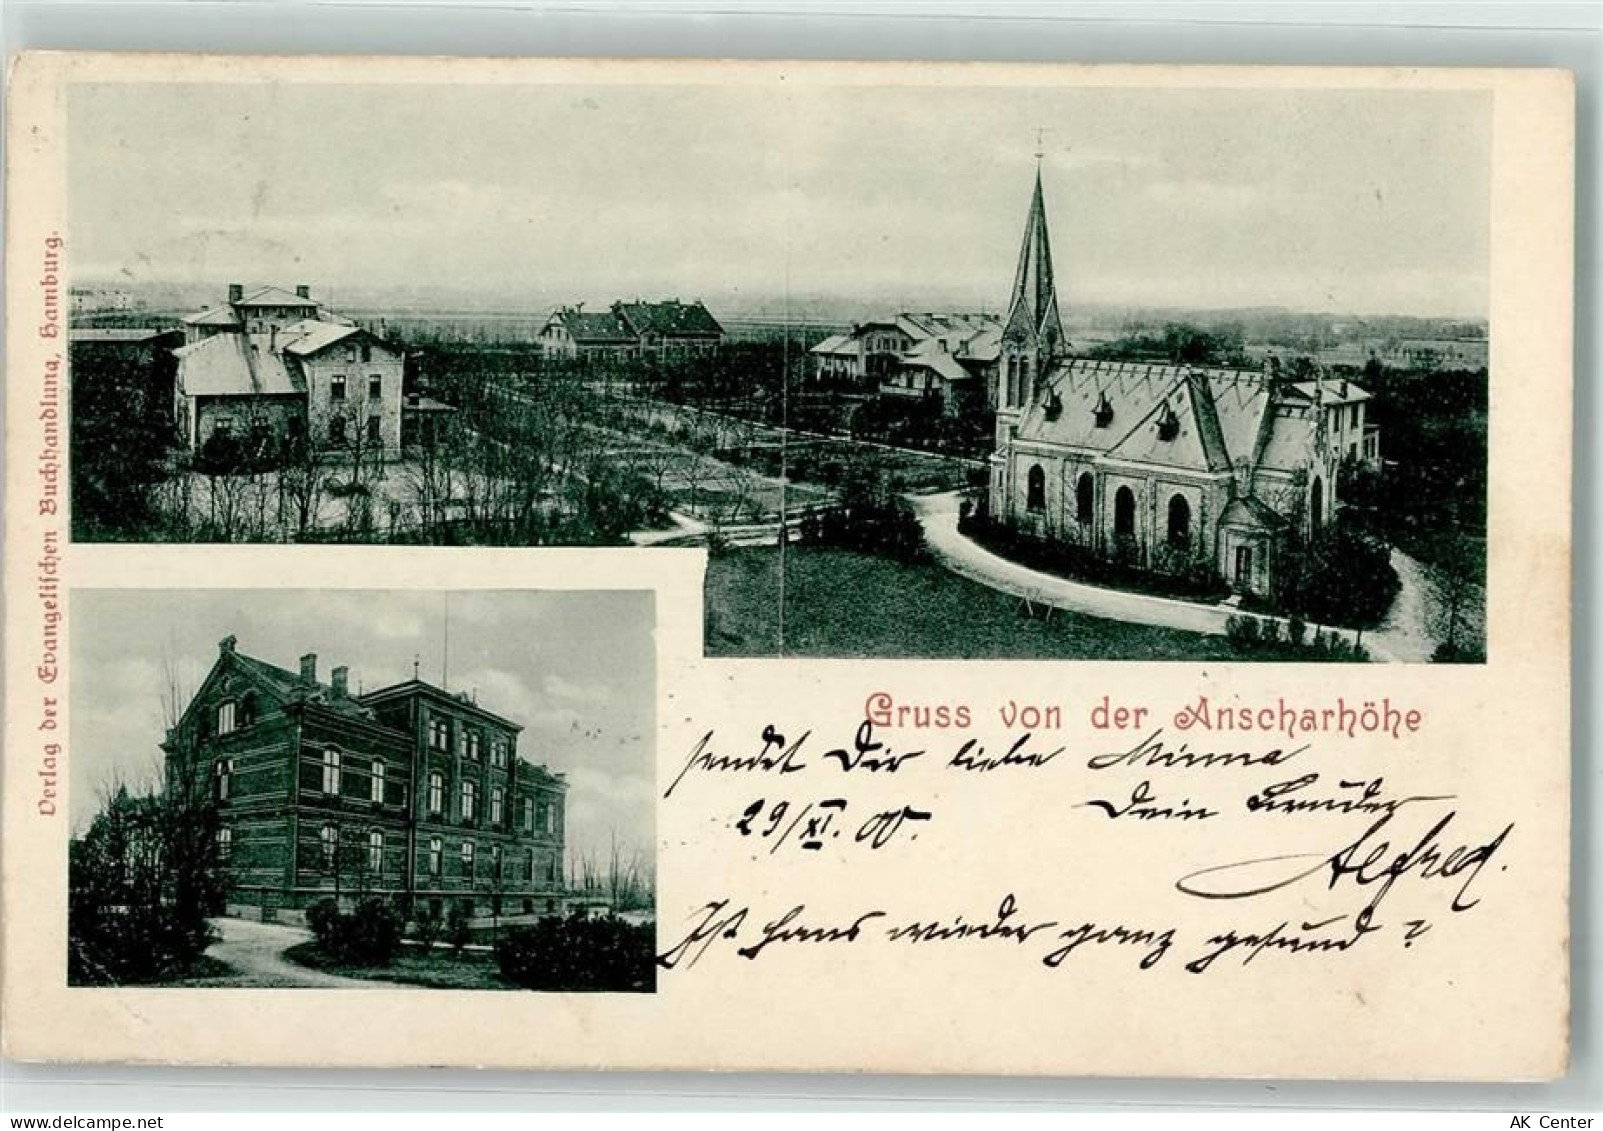 Verlag der Evangelischen Buchhandlung, Hamburg.
Gruss von der Anscharhöhe
sendet Dir liebe Minna
29/XI. 00.
Dein Bruder
Alfred.
Ist Hans wieder ganz gesund?
AK Center